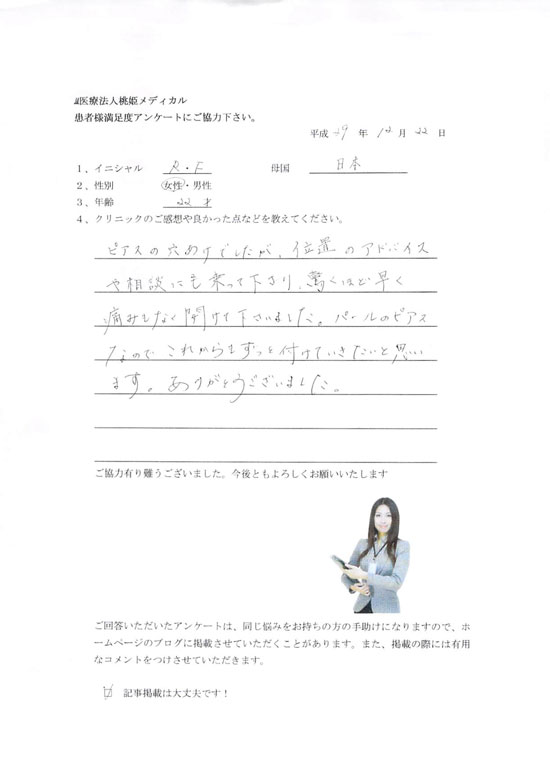 医療法人桃姫メディカル
患者様満足度アンケートにご協力下さい。
平成 29 年 12 月 22 日
1、イニシャル R・F 母国 日本
2、性別 女性・男性
3、年齢 22 才
4、クリニックのご感想や良かった点などを教えてください。
ピアスの穴あけでしたが、位置のアドバイス
や相談にも乗って下さり、驚くほど早く
痛みもなく開けて下さいました。パールのピアス
なので これからもずっと付けていきたいと思い
ます。ありがとうございました。
ご協力有り難うございました。今後ともよろしくお願いいたします
ご回答いただいたアンケートは、同じ悩みをお持ちの方の手助けになりますので、ホ
ームページのブログに掲載させていただくことがあります。また、掲載の際には有用
なコメントをつけさせていただきます。
記事掲載は大丈夫です！